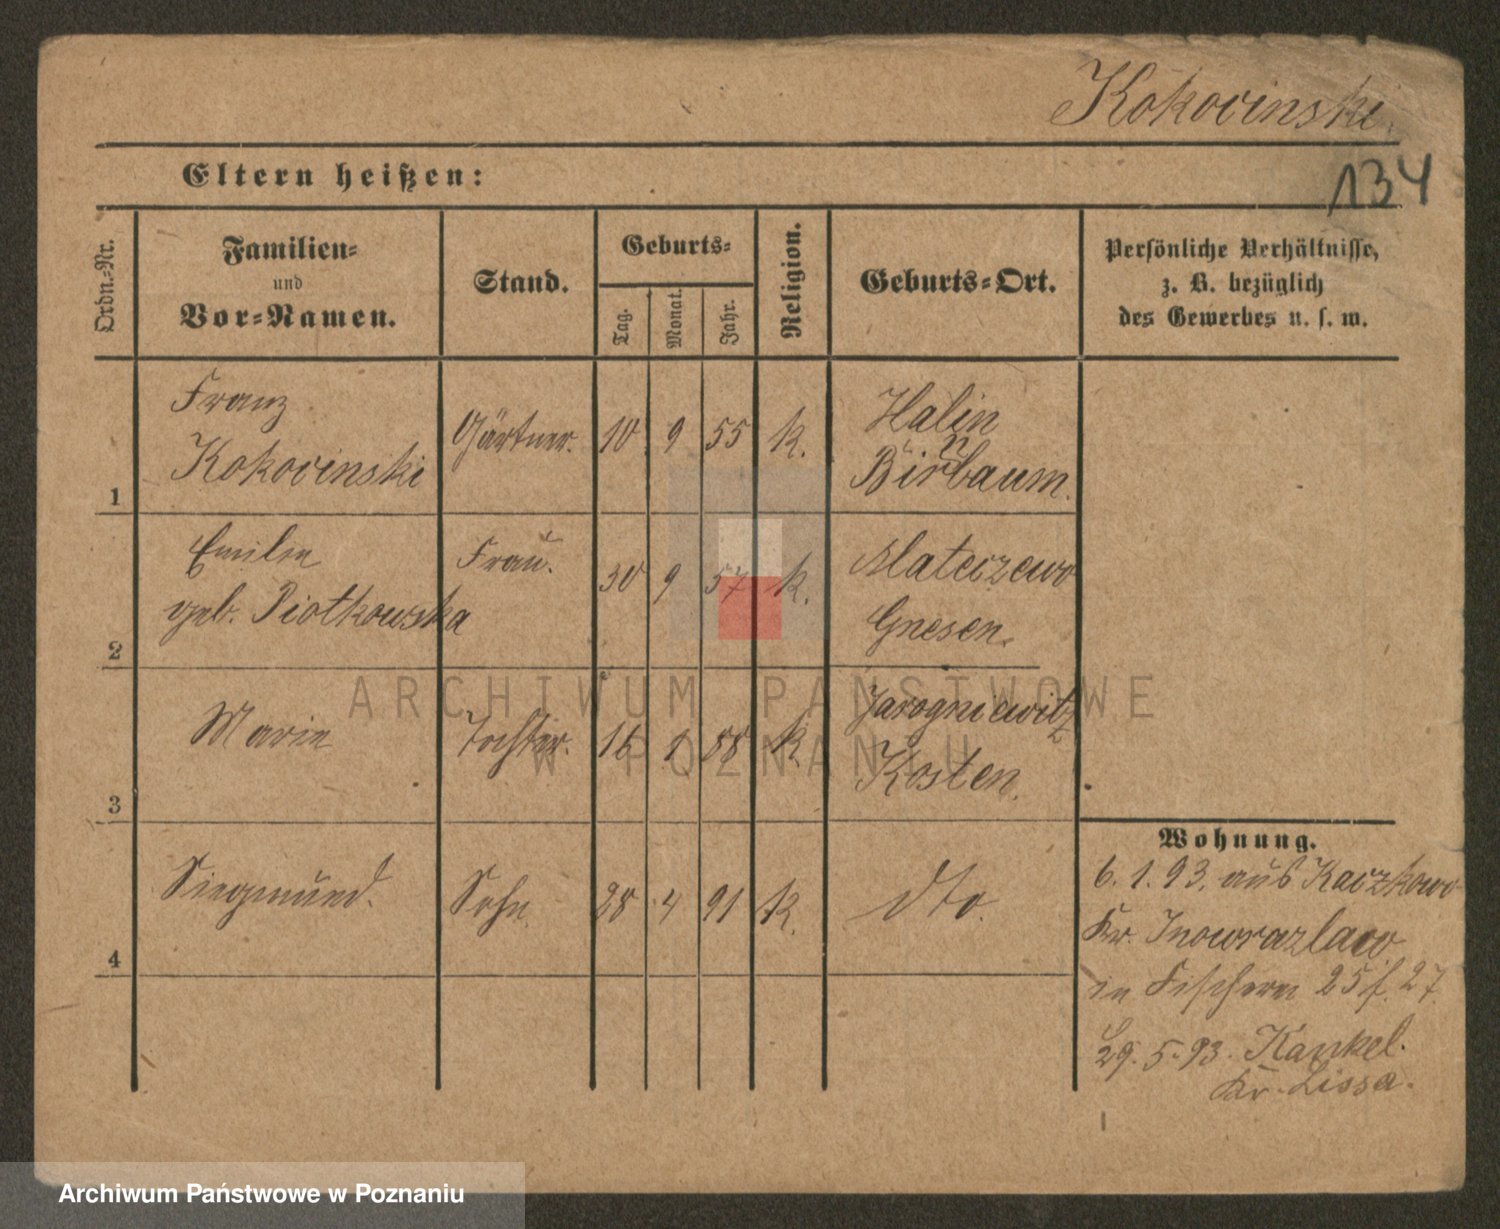 Kokovinski.
134
Eltern heißen:
Ordn.-Nr.
Familien-
und
Vor-Namen.
Stand.
Geburts-
Tag.
Monat.
Jahr.
Religion.
Geburts-Ort.
Persönliche Verhältnisse,
z. B. bezüglich
des Gewerbes u. s. w.
1
Franz
Kokovinski
Gärtner.
10 9 55
k.
Halin
Birnbaum.
2
Emilie
geb. Piotkowska
Frau.
30 9 57
k.
Mateczewo
Gnesen.
3
Marie
Tochter.
16 1 88
k
Jarogniewitz
Kosten.
4
Siegmund.
Sohn
28 4 91
k.
dto.
Wohnung.
6.1.93. aus Kaczkowo
Kr. Inowrazlaw
in Fischerei 25 f. 27.
29.5.93. Kankel.
Kr. Lissa.
ARCHIWUM PAŃSTWOWE
W POZNANIU
Archiwum Państwowe w Poznaniu